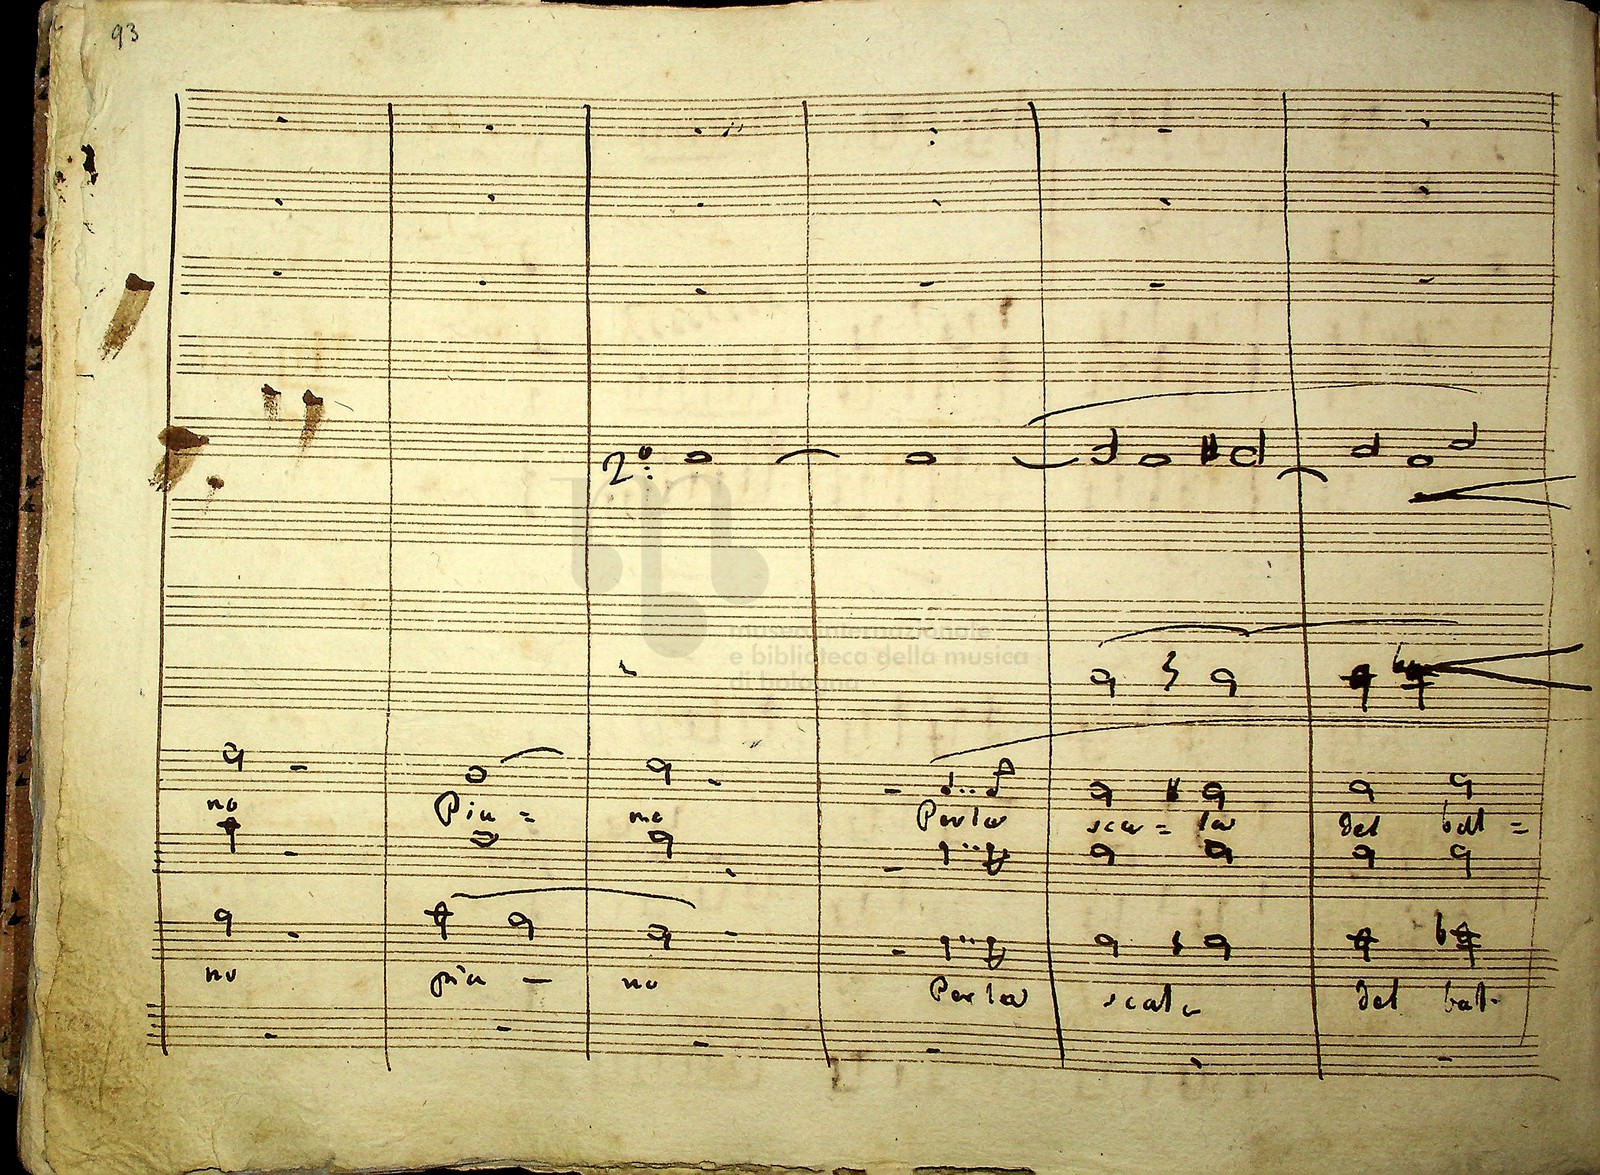 93
2º:
museo internazionale
e biblioteca della musica
di bologna
no Pia = no Per la sca = la del bal =
no pia — no Per la scala del bal-